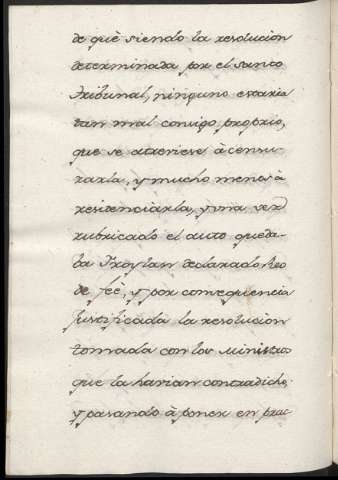 de què siendo la resolucion
determinada por el santo
Tribunal, ninguno estaria
tan mal consigo proprio,
que se atreviese à censu-
rarla, y mucho menos à
residenciarla, y una vez
rubricado el auto queda-
ba Froylan declarado Reo
de feè, y por consequencia
justificada la resolucion
tomada con los Ministros
que la havian contradicho,
y pasando à poner en prac-